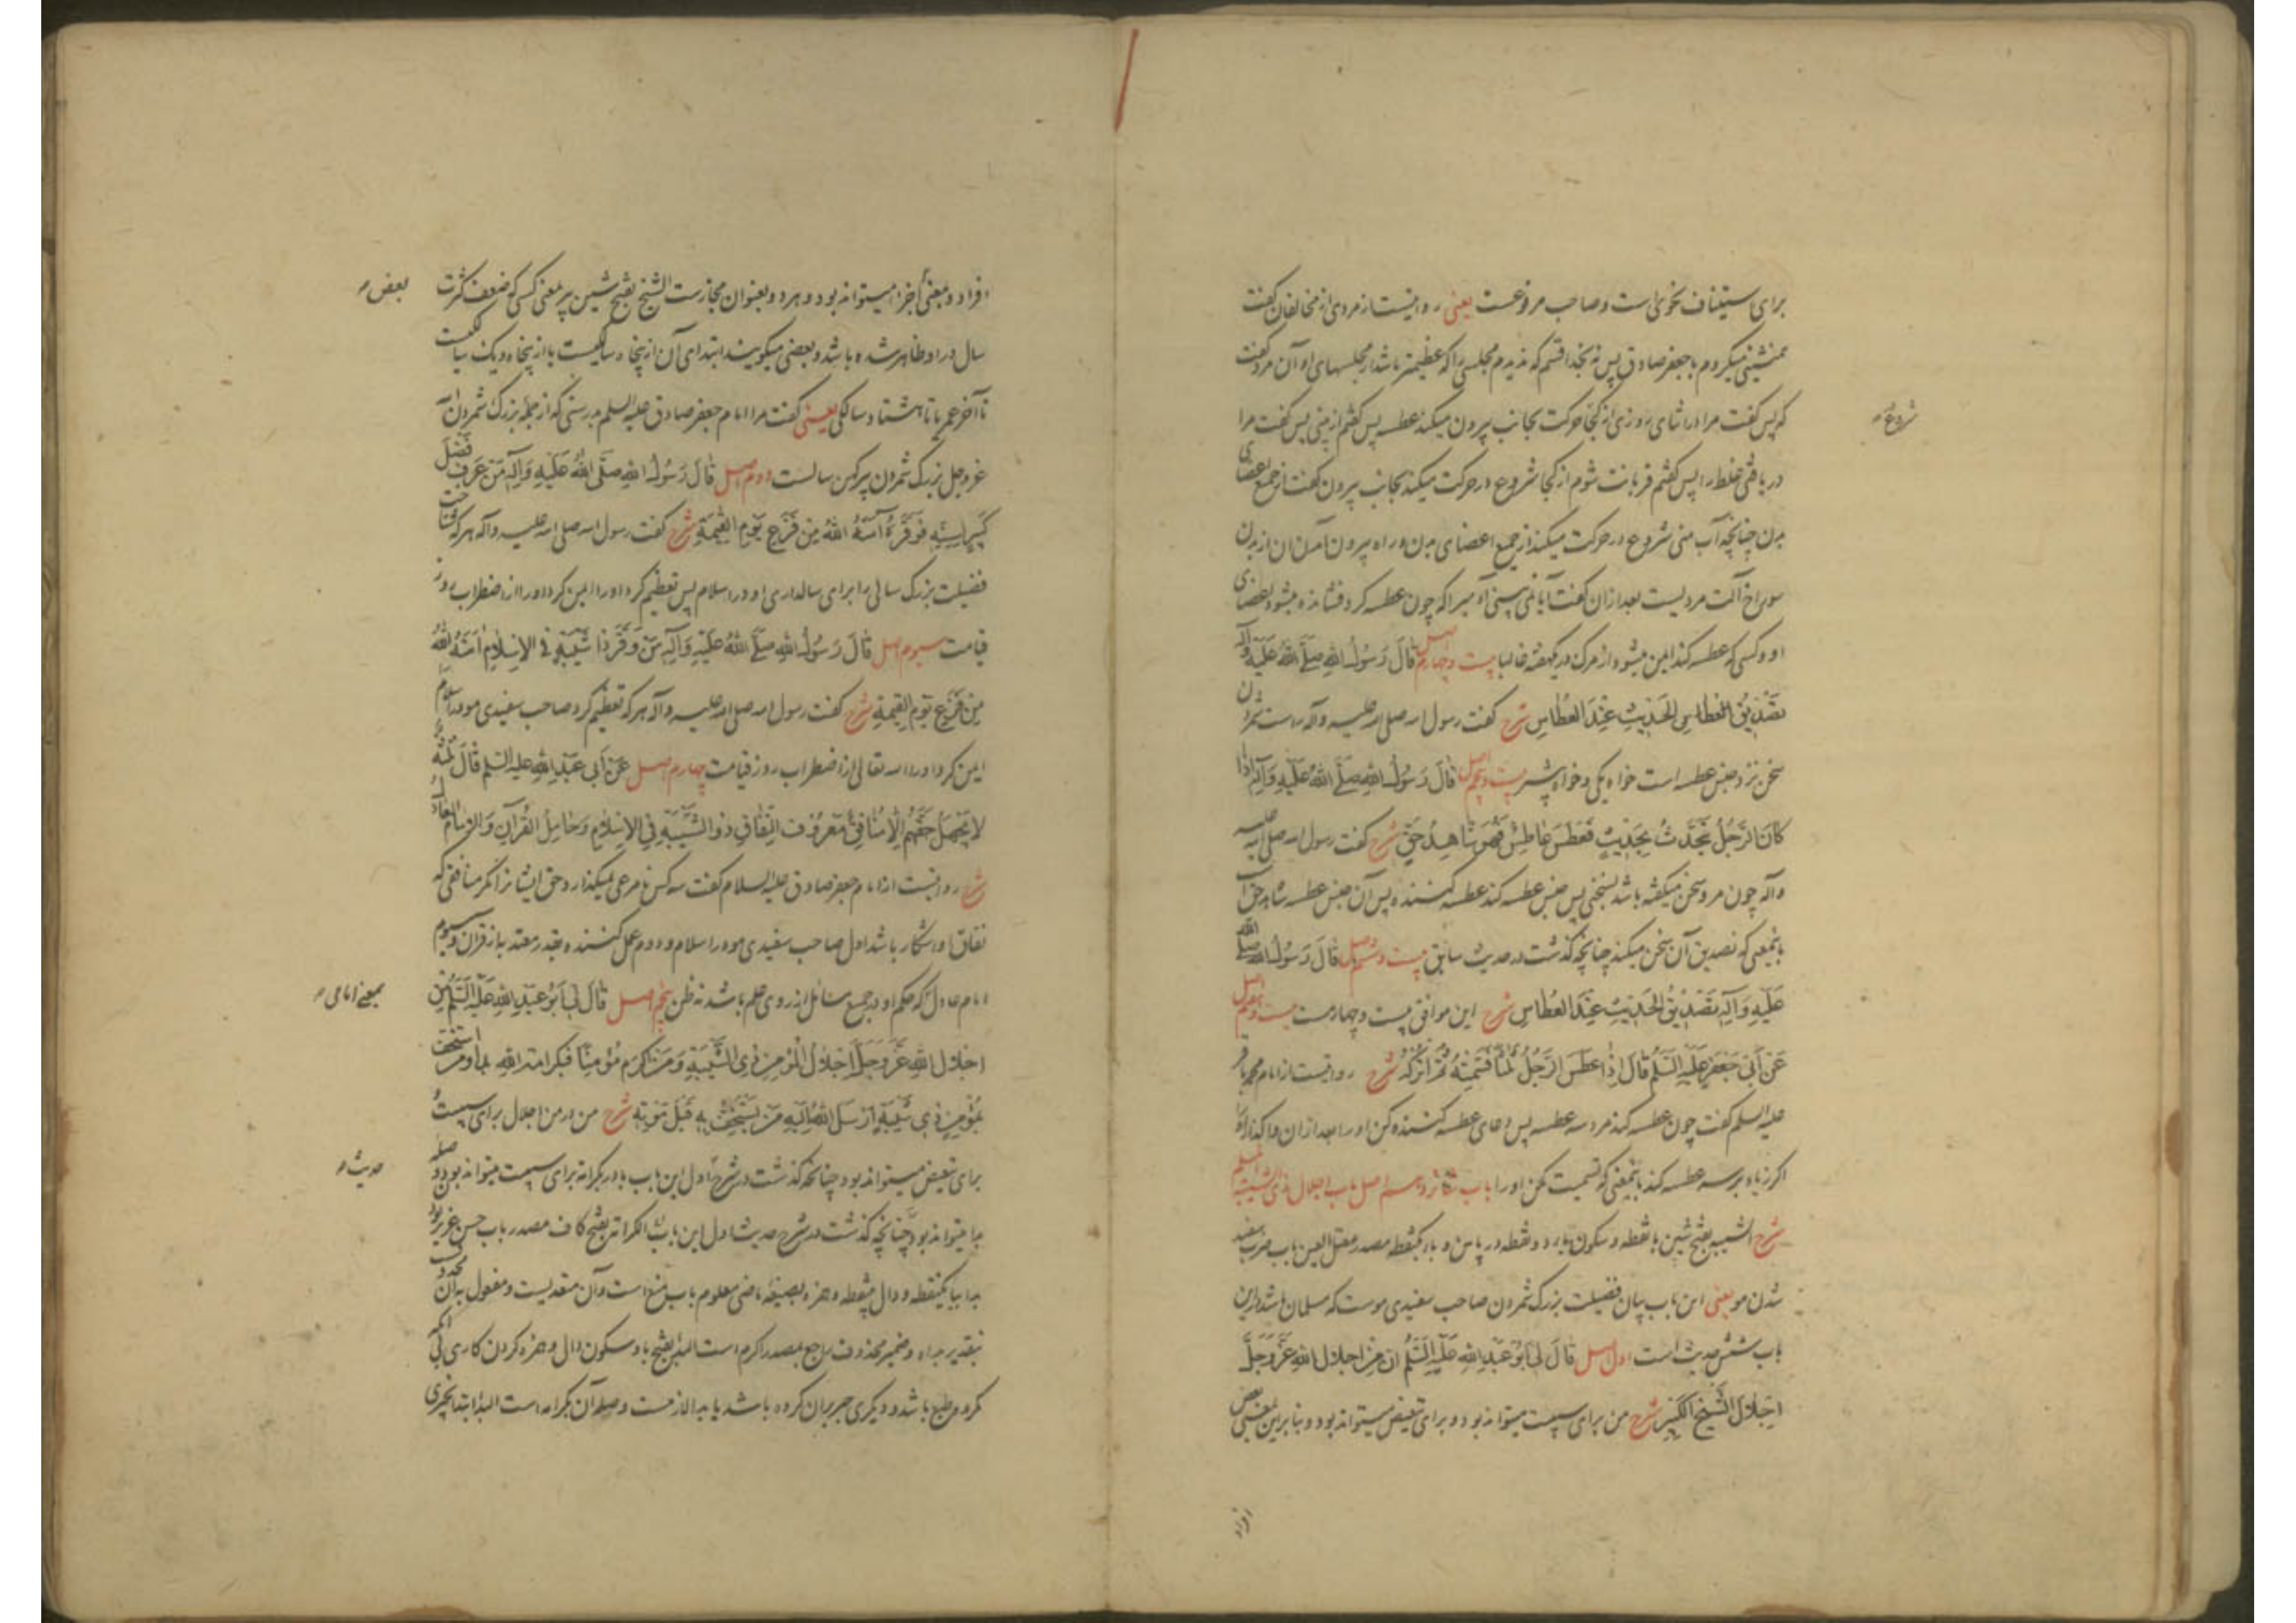 برای استیناف نحوی است و صاحب مروغست یعنی روایتست از مردی از مخالفان گفت
همنشینی میکردم با جعفر صادق پس نه بخدا قسم که ندیدم مجلسی را که عظیمتر باشد از مجلسهای او آن مرد گفت
که پس گفت مرا در اثنای روزی از کجا حرکت بجانب بیرون میکند عطسه پس گفتم از بینی پس گفت مرا
شروع
دریافتی غلط را پس گفتم قربانت شوم از کجا شروع در حرکت میکند بجانب بیرون گفت از جمیع اعضای
بدن چنانچه آب منی شروع در حرکت میکند از جمیع اعضای بدن و راه بیرون آمدن آن از بدن
سوراخ آلت مردیست بعد از ان گفت آیا نمی بینی آدمیرا که چون عطسه کرد افشانده میشود اعضای
او و کسی که عطسه کند ایمن میشود از مرگ در یکهفته غالبا بیست و چهارم اصل قَالَ رَسُولُ اللهِ صَلَّى اللهُ عَلَيْهِ وَآلِهِ
تَصْدِيقُ الْحَدِيثِ عِنْدَ الْعُطَاسِ شرح گفت رسول الله صلی الله علیه وآله راست شمردن
سخن نزد جنس عطسه است خواه یکی و خواه بیشتر بیست و پنجم اصل قَالَ رَسُولُ اللهِ صَلَّى اللهُ عَلَيْهِ وَآلِهِ إِذَا
كَانَ الرَّجُلُ يَتَحَدَّثُ بِحَدِيثٍ فَعَطَسَ عَاطِسٌ فَهُوَ شَاهِدُ حَقٍّ شرح گفت رسول الله صلی الله علیه
وآله چون مرد سخن میگفته باشد بسخنی پس جنس عطسه کند عطسه کننده پس آن جنس عطسه شاهد حق است
باینمعنی که تصدیق آن سخن میکند چنانچه گذشت در حدیث سابق بیست و ششم اصل قَالَ رَسُولُ اللهِ صَلَّى اللهُ
عَلَيْهِ وَآلِهِ تَصْدِيقُ الْحَدِيثِ عِنْدَ الْعُطَاسِ شرح این موافق بیست و چهارمست بیست و هفتم اصل
عَنْ أَبِي جَعْفَرٍ عَلَيْهِ السَّلَمُ قَالَ إِذَا عَطَسَ الرَّجُلُ ثَلٰثًا فَسَمِّتْهُ ثُمَّ اتْرُكْهُ شرح روایتست از امام محمد باقر
علیه السلم گفت چون عطسه کند مرد سه عطسه پس دعای عطسه کننده کن او را بعد از ان واگذار او را
اگر زیاده بر سه عطسه کند باینمعنی که تسمیت مکن او را باب شانزدهم اصل باب اجلال ذی الشیبة المسلم
شرح الشیبه بفتح شین با نقطه و سکون یاء دو نقطه در پایین و باء یکنقطه مصدر معتل العین باب ضرب سفید
شدن مو یعنی این باب بیان فضیلت بزرگ شمردن صاحب سفیدی موست که مسلمان باشد در این
باب شش حدیث است اول اصل قَالَ لِي أَبُو عَبْدِ اللهِ عَلَيْهِ السَّلَمُ إِنَّ مِنْ إِجْلَالِ اللهِ عَزَّ وَجَلَّ
إِجْلَالَ الشَّيْخِ الْكَبِيرِ شرح من برای سببیت میتواند بود و برای تبعیض میتواند بود و بنابر این بمعنی بعض
افراد
افراد و بمعنی أجزا میتواند بود و هر دو بعنوان مجازست الشیخ بفتح شین پیر بمعنی کسی که ضعف کثرت
بعض
سال در او ظاهر شده باشد و بعضی میگویند ابتدای آن از پنجاه سالگیست یا از پنجاه و یک سالگیست
تا آخر عمر یا تا هشتاد سالگی یعنی گفت مرا امام جعفر صادق علیه السلم بدرستی که از جمله بزرگ شمردن الله
عز و جل بزرگ شمردن پیر کهن سالست دوم اصل قَالَ رَسُولُ اللهِ صَلَّى اللهُ عَلَيْهِ وَآلِهِ مَنْ عَرَفَ فَضْلَ
كَبِيرٍ لِسِنِّهِ فَوَقَّرَهُ آمَنَهُ اللهُ مِنْ فَزَعِ يَوْمِ الْقِيٰمَةِ شرح گفت رسول الله صلی الله علیه وآله هر که شناخت
فضیلت بزرگ سالی را برای سالداری او در اسلام پس تعظیم کرد او را ایمن کرد او را از اضطراب روز
قیامت سیوم اصل قَالَ رَسُولُ اللهِ صَلَّى اللهُ عَلَيْهِ وَآلِهِ مَنْ وَقَّرَ ذَا شَيْبَةٍ فِي الْإِسْلَامِ آمَنَهُ اللهُ
مِنْ فَزَعِ يَوْمِ الْقِيٰمَةِ شرح گفت رسول الله صلی الله علیه وآله هر که تعظیم کرد صاحب سفیدی مو در اسلام
ایمن کرد او را الله تعالی از اضطراب روز قیامت چهارم اصل عَنْ أَبِي عَبْدِ اللهِ علیه السلم قَالَ ثَلٰثَةٌ
لَا يَجْهَلُ حَقَّهُمْ إِلَّا مُنَافِقٌ مَعْرُوفُ النِّفَاقِ ذُو الشَّيْبَةِ فِي الْإِسْلَامِ وَحَامِلُ الْقُرْآنِ وَالْإِمَامُ الْعَادِلُ
شرح روایتست از امام جعفر صادق علیه السلام گفت سه کس نامرعی نمیگذارد حق ایشانرا مگر منافقی که
نفاق او آشکار باشد اول صاحب سفیدی مو در اسلام و دوم عمل کننده بقدر معتد به از قرآن و سیوم
امام عادل که حکم او در جمیع مسائل از روی علم باشد نه ظن پنجم اصل قَالَ لِي أَبُو عَبْدِ اللهِ عَلَيْهِ السَّلَمُ مِنْ
بمعنی امامی
إِجْلَالِ اللهِ عَزَّ وَجَلَّ إِجْلَالُ الْمُؤْمِنِ ذِي الشَّيْبَةِ وَمَنْ أَكْرَمَ مُؤْمِنًا فَبِكَرَامَةِ اللهِ بَدَأَ وَمَنِ اسْتَخَفَّ
بِمُؤْمِنٍ ذِي شَيْبَةٍ أَرْسَلَ اللهُ إِلَيْهِ مَنْ يَسْتَخِفُّ بِهِ قَبْلَ مَوْتِهِ شرح من در من اجلال برای سببیت
برای تبعیض میتواند بود چنانچه گذشت در شرح اول این باب با در بکرامة برای سببیت میتواند بود و صله
حدیث
بدا میتواند بود چنانچه گذشت در شرح حدیث اول این باب الکرامة بفتح کاف مصدر باب حسن عزیز بودن
بدا بباء یکنقطه و دال بینقطه و همزه بصیغه ماضی معلوم باب منع است و آن متعدیست و مفعول به آن محذوف
بتقدیر بداه و ضمیر محذوف راجع بمصدر اکرم است البدء بفتح با و سکون دال و همزه کردن کاری بی آنکه
کرد بطبع باشد و دیگری جبر بران کرده باشد یا بدا لازمست و صله آن بکرامه است البدا ابتدا بچیزی